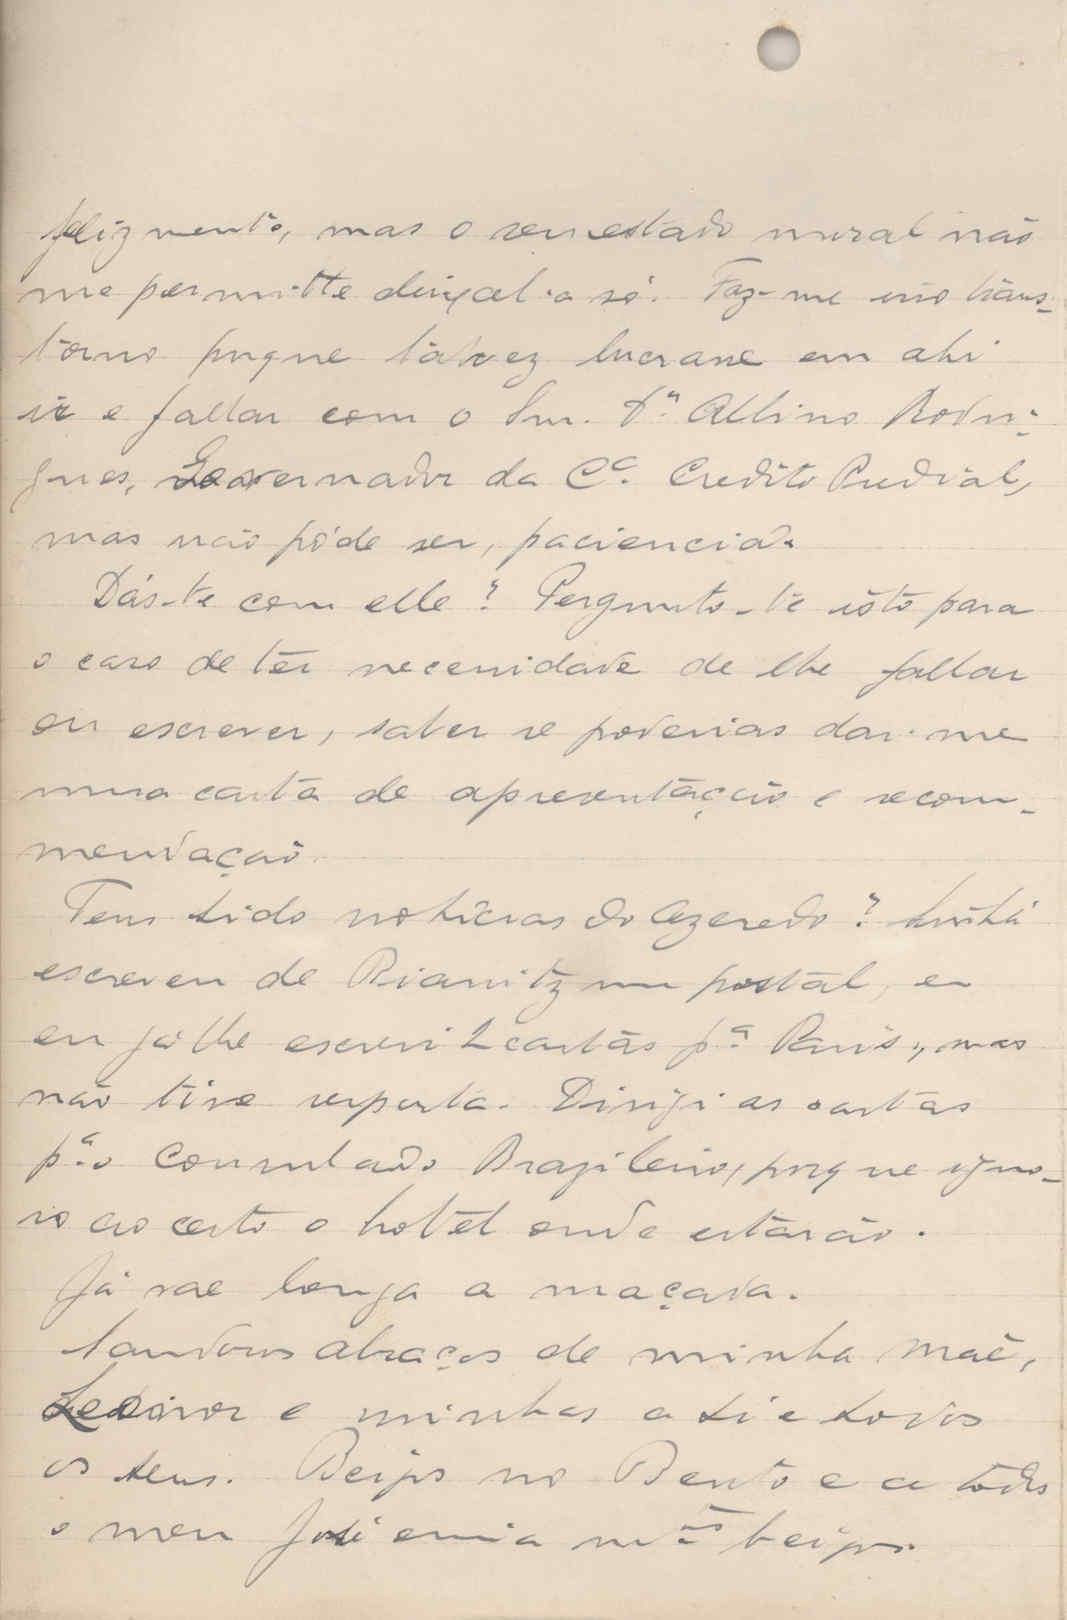 felizmente, mas o seu estado moral não
me permitte deixal-a só. Faz-me isso trans-
torno porque talvez lucrasse em ahi
ir e fallar com o Snr. Dr. Albino Rodri-
gues, Governador da Cª. Credito Predial,
mas não póde ser, paciencia.
Dás-te com elle? Pergunto-te isto para
o caso de ter necessidade de lhe fallar
ou escrever, saber se poderias dar-me
uma carta de apresentação e recom-
mendação.
Tens tido noticias do Azeredo?
escreveu de Biarritz um postal, eu
eu já lhe escrevi 2 cartas pª Paris, mas
não tive resposta. Dirigi as cartas
pª o Consulado Brazileiro, porque igno-
ro ao certo o hotel onde estarão.
Já vae longa a maçada.
Saudosos abraços de minha Mãe,
Leonor e minhas a ti e todos
os teus. Beijos no Bento e a todos
o meu José envia mtos beijos.